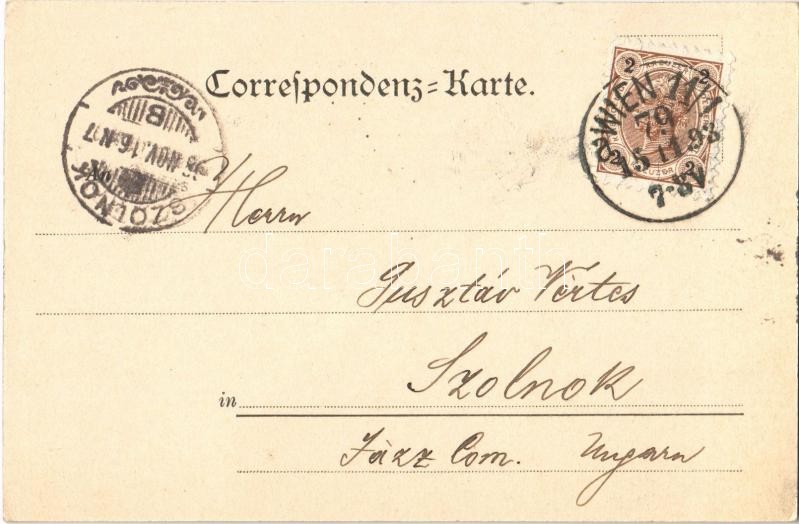 Correspondenz-Karte.
WIEN 11/1
79
15 11 98
7-8V
2 2
2 2
SZOLNOK
NOV. 16
B
Herrn
Gusztáv Vértes
in Szolnok
Jász Com. Ungarn
darabanth